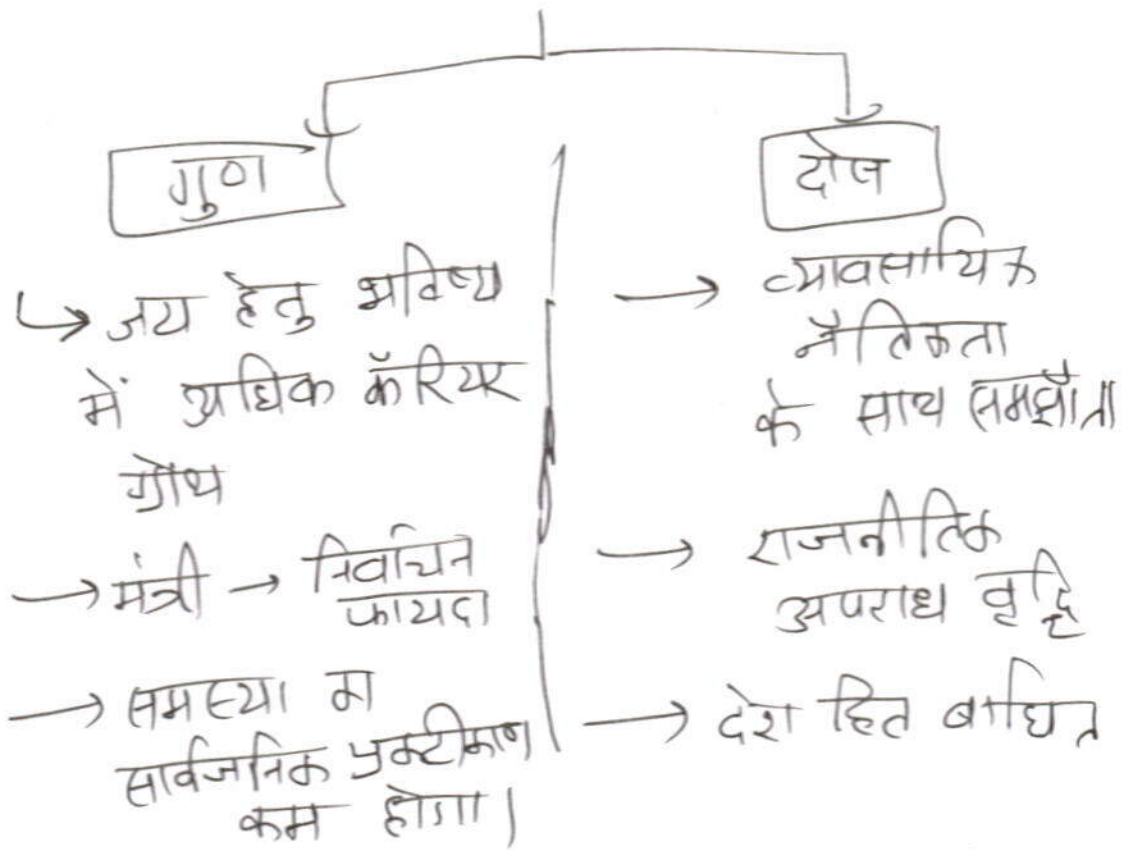 गुण
↳ जय हेतु भविष्य
में अधिक कॅरियर
ग्रोथ
→ मंत्री → निर्वाचन
फायदा
→ समस्या का
सार्वजनिक प्रकटीकरण
कम होगा।
दोष
→ व्यावसायिक
नैतिकता
के साथ समझौता
→ राजनीतिक
अपराध वृद्धि
→ देश हित बाधित